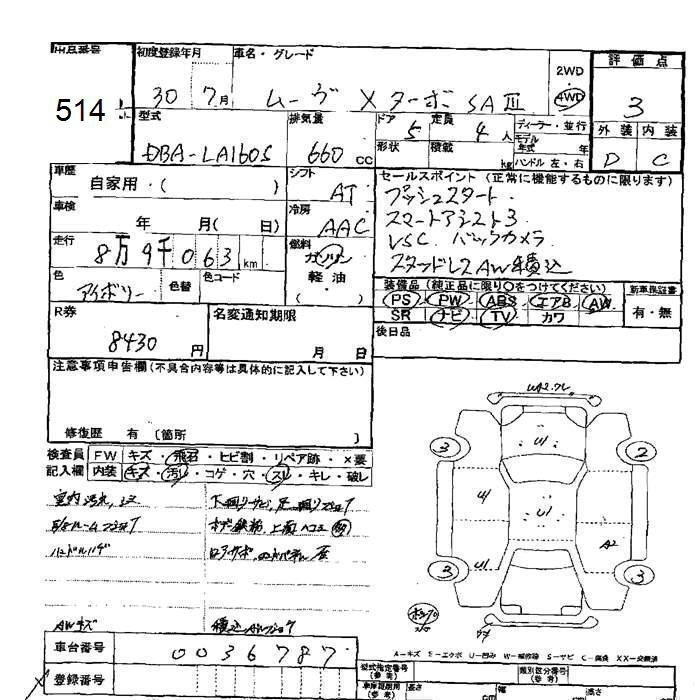 出品番号
初度登録年月
車名・グレード
評価点
514
30 7月
ムーヴ X ターボ SAⅢ
2WD
4WD
3
型式
排気量
ドア 5
定員 4人
ディーラー・並行
外装 内装
DBA-LA160S
660 cc
形状
積載 kg
モデル年式 年
ハンドル 左・右
D C
車歴
自家用・( )
シフト
AT
セールスポイント(正常に機能するものに限ります)
プッシュスタート
スマートアシスト3
VSC. バックカメラ
スタッドレスAW積込
車検
年 月( 日)
冷房
AAC
走行
8万9千063 km
燃料
ガソリン
軽油
・( )
色
アイボリー
色替
色コード
装備品(純正品に限り○をつけてください)
新車保証書
PS PW ABS エアB AW
SR ナビ TV カワ
有・無
R券
8430円
名変通知期限
月 日
後日品
注意事項申告欄(不具合内容等は具体的に記入して下さい)
修復歴 有 〔箇所 〕
検査員
記入欄
FW キズ・飛石・ヒビ割・リペア跡・×要
内装 キズ・汚レ・コゲ・穴・スレ・キレ・破レ
室内汚れ
ハンドルハゲ
AWキズ
U1
U1
U1
A2
3
2
3
3
車台番号
0036787
登録番号
A-キズ E-エクボ U-凹み W-補修跡 S-サビ C-腐食 XX-交換済
型式指定番号
(参考)
類別区分番号
(参考)
長さ
cm